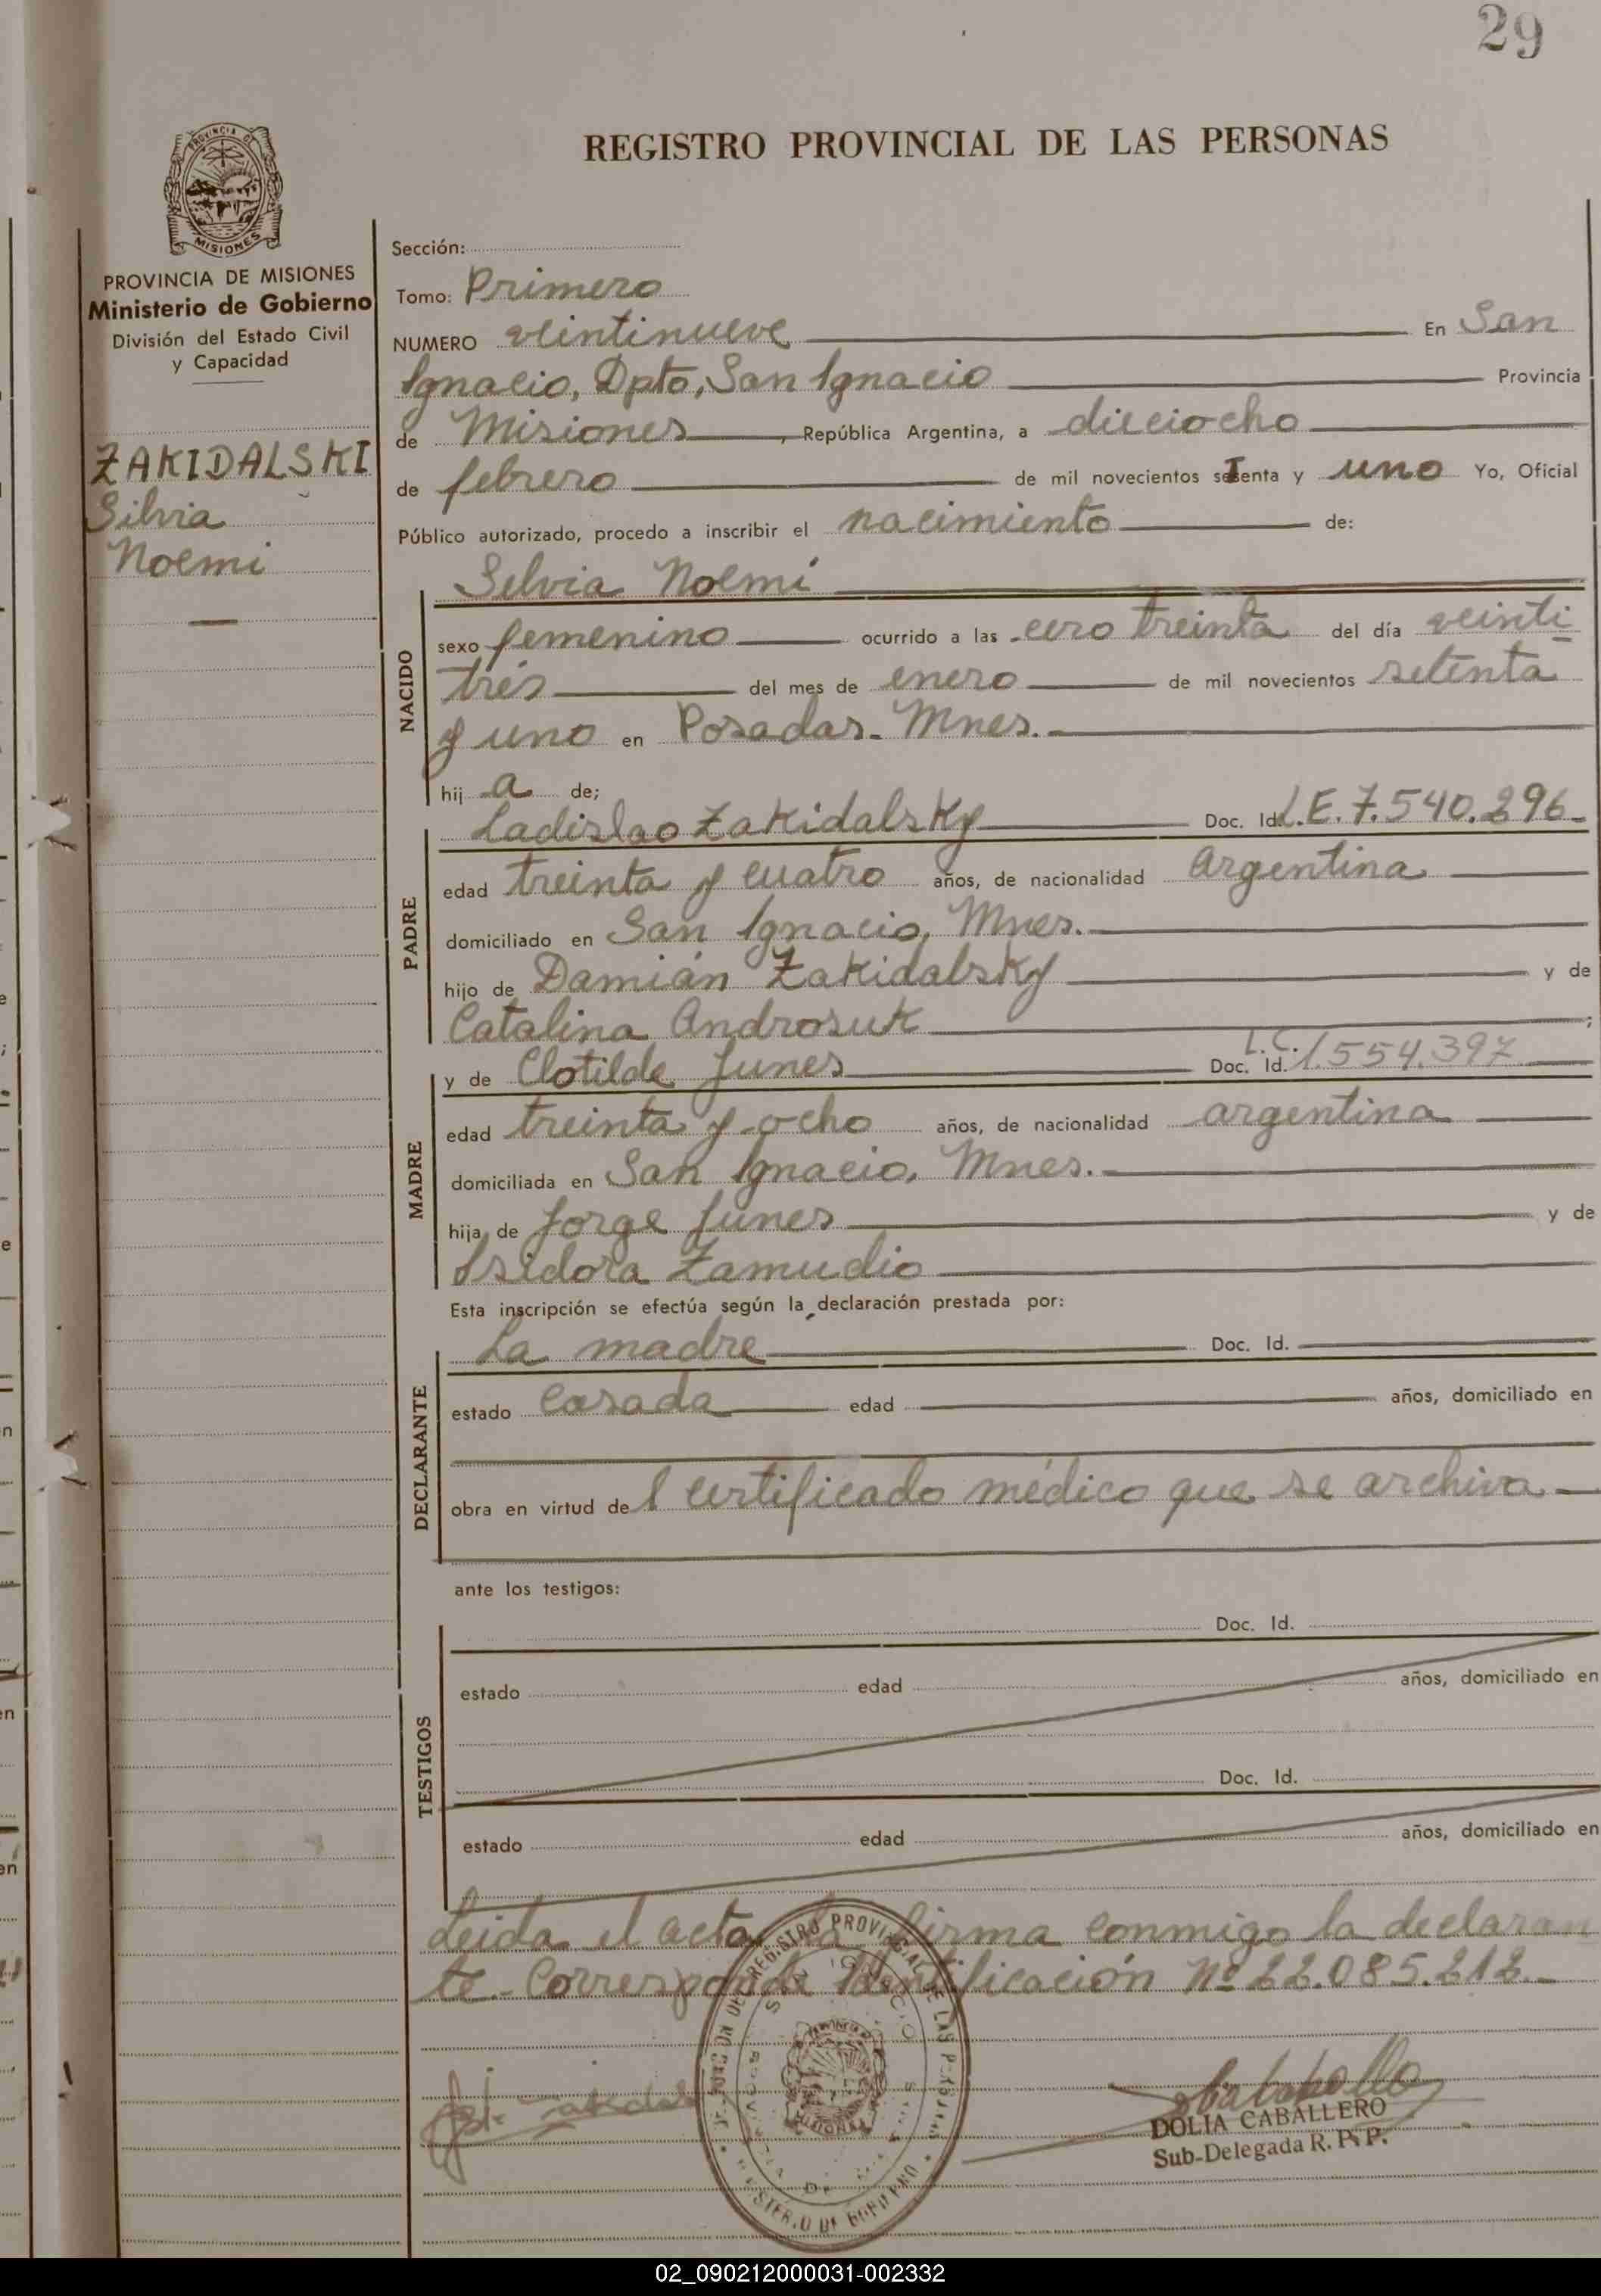 29
PROVINCIA DE
MISIONES
REGISTRO PROVINCIAL DE LAS PERSONAS
PROVINCIA DE MISIONES
Ministerio de Gobierno
División del Estado Civil
y Capacidad
ZAKIDALSKI
Silvia
Noemi
Sección:
Tomo: Primero
NUMERO veintinueve En San
Ignacio, Dpto, San Ignacio Provincia
de Misiones, República Argentina, a dieciocho
de febrero de mil novecientos seTenta y uno Yo, Oficial
Público autorizado, procedo a inscribir el nacimiento de:
NACIDO
Silvia Noemi
sexo femenino ocurrido a las cero treinta del día veinti
trés del mes de enero de mil novecientos setenta
y uno en Posadas - Mnes.-
hij a de;
PADRE
Ladislao Zakidalsky Doc. Id. L.E. 7.540.296-
edad treinta y cuatro años, de nacionalidad Argentina
domiciliado en San Ignacio, Mnes.-
hijo de Damián Zakidalsky y de
Catalina Androsuk ;
MADRE
y de Clotilde Junes Doc. Id. L.C. 1.554.397
edad treinta y ocho años, de nacionalidad argentina
domiciliada en San Ignacio, Mnes.-
hija de Jorge Junes y de
Isidora Zamudio
Esta inscripción se efectúa según la declaración prestada por:
DECLARANTE
La madre Doc. Id.
estado Casada edad años, domiciliado en
obra en virtud del certificado médico que se archiva-
ante los testigos:
TESTIGOS
Doc. Id.
estado edad años, domiciliado en
Doc. Id.
estado edad años, domiciliado en
Leida el acta la firma conmigo la declaran
te.- Corresponde Identificación Nº 22.085.212.-
DOLIA CABALLERO
Sub-Delegada R. P. P.
02_090212000031-002332